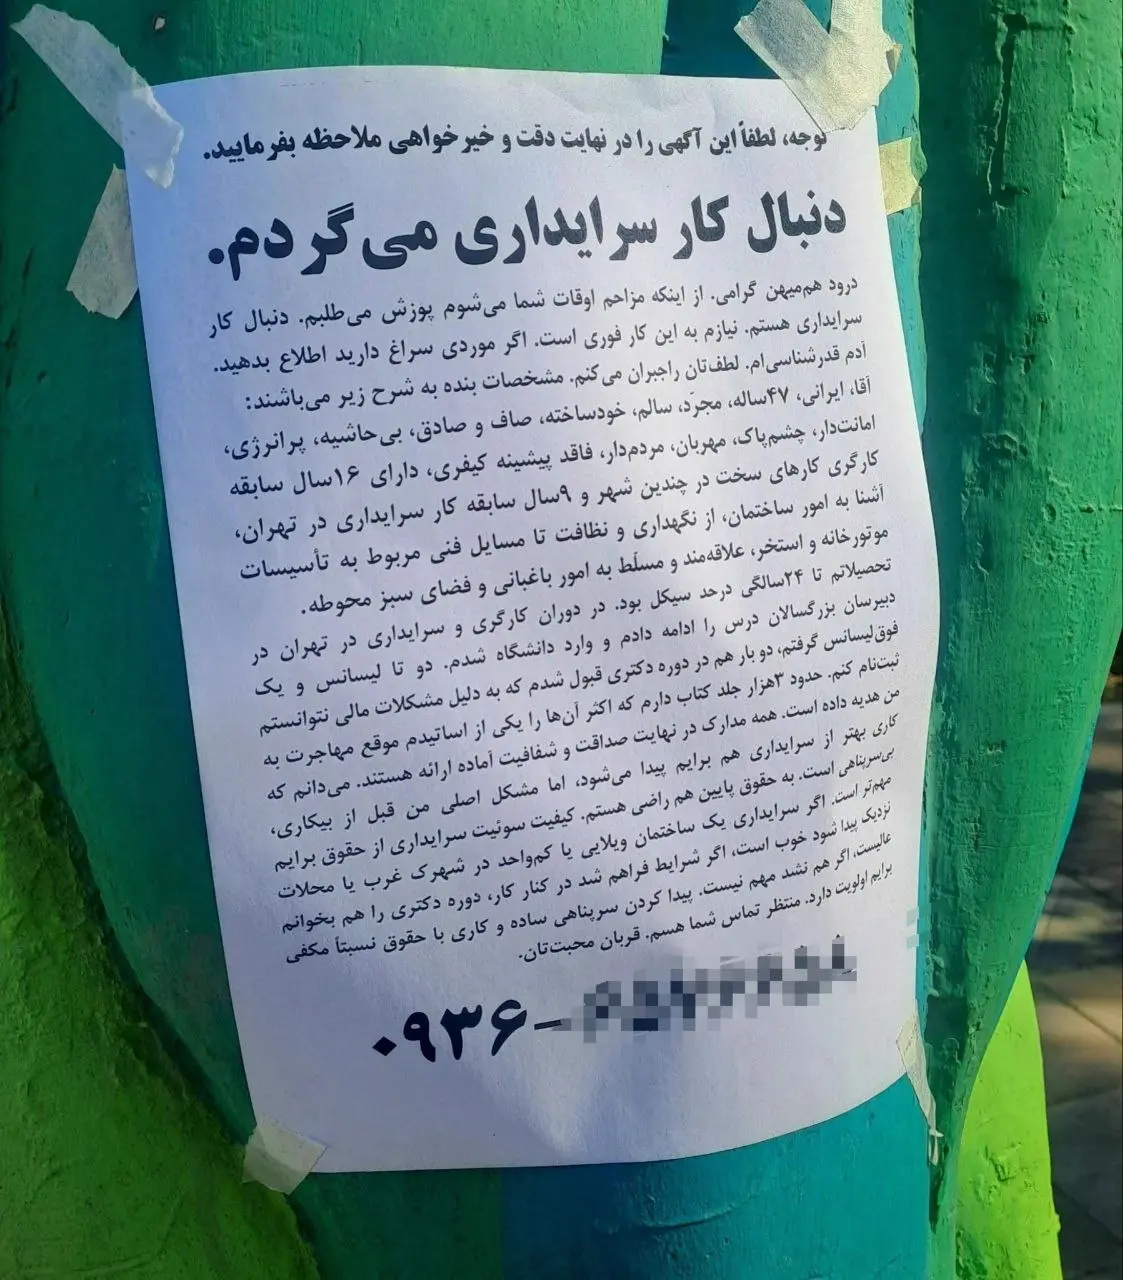 توجه، لطفاً این آگهی را در نهایت دقت و خیرخواهی ملاحظه بفرمایید.
دنبال کار سرایداری می‌گردم.
درود هم‌میهن گرامی. از اینکه مزاحم اوقات شما می‌شوم پوزش می‌طلبم. دنبال کار
سرایداری هستم. نیازم به این کار فوری است. اگر موردی سراغ دارید اطلاع بدهید.
آدم قدرشناسی‌ام. لطف‌تان راجبران می‌کنم. مشخصات بنده به شرح زیر می‌باشند:
آقا، ایرانی، ۴۷ساله، مجرّد، سالم، خودساخته، صاف و صادق، بی‌حاشیه، پرانرژی،
امانت‌دار، چشم‌پاک، مهربان، مردم‌دار، فاقد پیشینه کیفری، دارای ۱۶سال سابقه
کارگری کارهای سخت در چندین شهر و ۹سال سابقه کار سرایداری در تهران،
آشنا به امور ساختمان، از نگهداری و نظافت تا مسایل فنی مربوط به تأسیسات
موتورخانه و استخر، علاقه‌مند و مسلّط به امور باغبانی و فضای سبز محوطه.
تحصیلاتم تا ۲۴سالگی درحد سیکل بود. در دوران کارگری و سرایداری در تهران در
دبیرسان بزرگسالان درس را ادامه دادم و وارد دانشگاه شدم. دو تا لیسانس و یک
فوق‌لیسانس گرفتم، دو بار هم در دوره دکتری قبول شدم که به دلیل مشکلات مالی نتوانستم
ثبت‌نام کنم. حدود ۳هزار جلد کتاب دارم که اکثر آن‌ها را یکی از اساتیدم موقع مهاجرت به
من هدیه داده است. همه مدارک در نهایت صداقت و شفافیت آماده ارائه هستند. می‌دانم که
کاری بهتر از سرایداری هم برایم پیدا می‌شود، اما مشکل اصلی من قبل از بیکاری،
بی‌سرپناهی است. به حقوق پایین هم راضی هستم. کیفیت سوئیت سرایداری از حقوق برایم
مهم‌تر است. اگر سرایداری یک ساختمان ویلایی یا کم‌واحد در شهرک غرب یا محلات
نزدیک پیدا شود خوب است، اگر شرایط فراهم شد در کنار کار، دوره دکتری را هم بخوانم
عالیست، اگر هم نشد مهم نیست. پیدا کردن سرپناهی ساده و کاری با حقوق نسبتاً مکفی
برایم اولویت دارد. منتظر تماس شما هسم. قربان محبت‌تان.
۰۹۳۶-